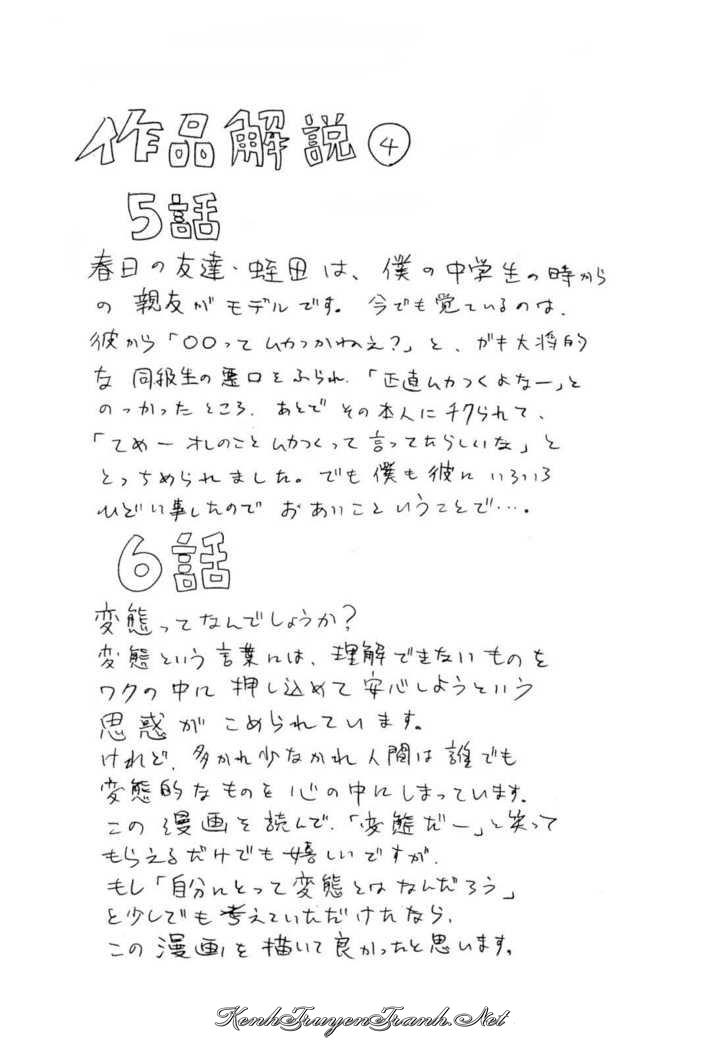 作品解説④
5話
春日の友達・蛭田は、僕の中学生の時から
の親友がモデルです。今でも覚えているのは、
彼から「〇〇ってムカつかねえ?」と、ガキ大将的
な同級生の悪口をふられ、「正直ムカつくよなー」と
のっかったところ、あとでその本人にチクられて、
「てめーオレのことムカつくって言ってたらしいな」と
とっちめられました。でも僕も彼にいろいろ
ひどい事したのでおあいこということで…。
6話
変態ってなんでしょうか?
変態という言葉には、理解できないものを
ワクの中に押し込めて安心しようという
思惑がこめられています。
けれど、多かれ少なかれ人間は誰でも
変態的なものを心の中にしまっています。
この漫画を読んで、「変態だー」と笑って
もらえるだけでも嬉しいですが、
もし「自分にとって変態とはなんだろう」
と少しでも考えていただけたなら、
この漫画を描いて良かったと思います。
KenhTruyenTranh.Net